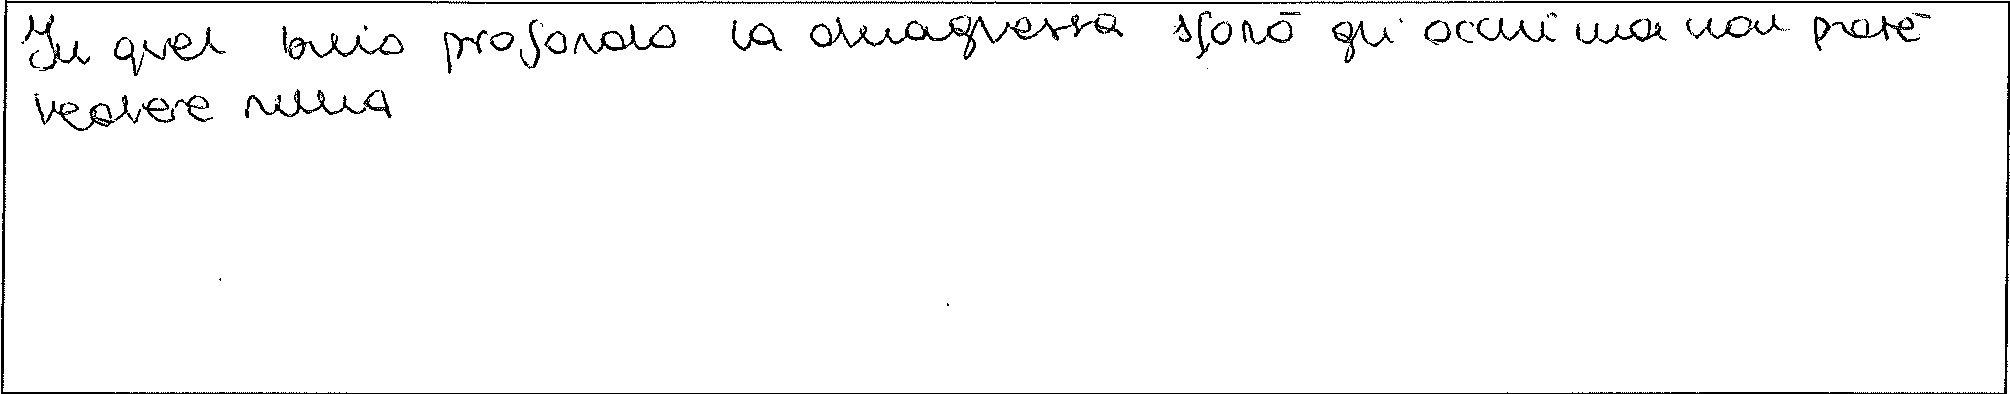 In quel buio profondo la draghessa sforò gli occhi ma non poté
vedere nulla